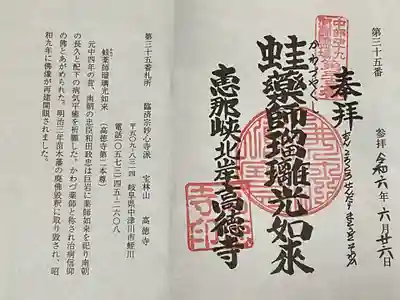 第三十五番
参拝 令和六年六月廿六日
奉拝
おんころころせんだりまとうぎそわか
中部四十九
かわずやくし
蛙薬師瑠璃光如來
恵那峡北岸高徳寺
第三十五番札所 臨済宗妙心寺派 宝林山 高徳寺
〒五〇九-八三一四 岐阜県中津川市蛭川
電話〇五七三-四五-二六〇八
蛙薬師瑠璃光如来 (高徳寺第二本尊)
元中四年の昔、南朝の忠臣和田政忠は巨岩に薬師如来を祀り南朝
の長久と配下の病気平癒を祈願した。かわづ薬師と称され治病信仰
の佛とあがめられた。明治三年苗木藩の廃佛毀釈に取り毀され、昭
和九年に佛像が再建開眼されました。